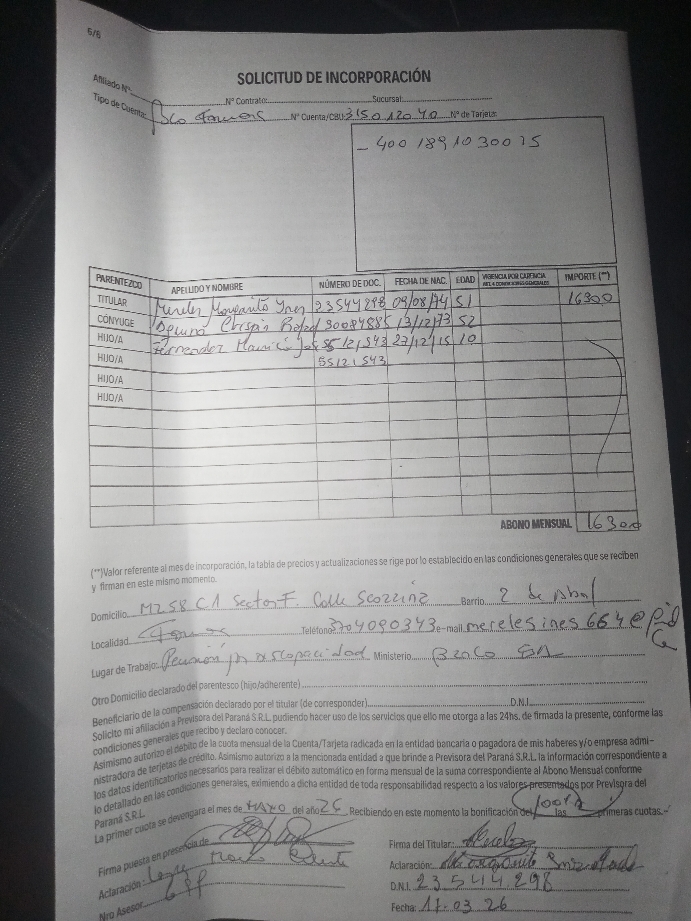 6/6
SOLICITUD DE INCORPORACIÓN
Afiliado Nº
Nº Contrato: Sucursal:
Tipo de Cuenta: Nº Cuenta/CBU: 3150120.40 Nº de Tarjeta:
- 400 1891030075
PARENTEZCO APELLIDO Y NOMBRE NÚMERO DE DOC. FECHA DE NAC. EDAD VIGENCIA POR CARENCIA IMPORTE (**)
TITULAR 23544298 09/08/74 51 16300
CÓNYUGE 30084885 13/12/73 52
HIJO/A Fernandez 55121543 27/12/15 10
HIJO/A 55121543
HIJO/A
HIJO/A
ABONO MENSUAL 16300
(**)Valor referente al mes de incorporación, la tabla de precios y actualizaciones se rige por lo establecido en las condiciones generales que se reciben
y firman en este mismo momento.
Domicilio MZ 58 C1 Sector F. Calle Barrio 2 de Abril
Localidad Teléfono 3704090343 e-mail merelesines664@
Lugar de Trabajo: Ministerio
Otro Domicilio declarado del parentesco (hijo/adherente)
Beneficiario de la compensación declarado por el titular (de corresponder) D.N.I.
Solicito mi afiliación a Previsora del Paraná S.R.L. pudiendo hacer uso de los servicios que ello me otorga a las 24hs. de firmada la presente, conforme las
condiciones generales que recibo y declaro conocer.
Asimismo autorizo el débito de la cuota mensual de la Cuenta/Tarjeta radicada en la entidad bancaria o pagadora de mis haberes y/o empresa admi-
nistradora de terjetas de crédito. Asimismo autorizo a la mencionada entidad a que brinde a Previsora del Paraná S.R.L. la información correspondiente a
los datos identificatorios necesarios para realizar el débito automático en forma mensual de la suma correspondiente al Abono Mensual conforme
lo detallado en las condiciones generales, eximiendo a dicha entidad de toda responsabilidad respecto a los valores presentados por Previsora del
Paraná S.R.L
La primer cuota se devengara el mes de del año 26 Recibiendo en este momento la bonificación del 100% las primeras cuotas.
Firma puesta en presencia de Firma del Titular:
Aclaración: Aclaración:
D.N.I. 23544298
Nro Asesor Fecha: 11-03.26